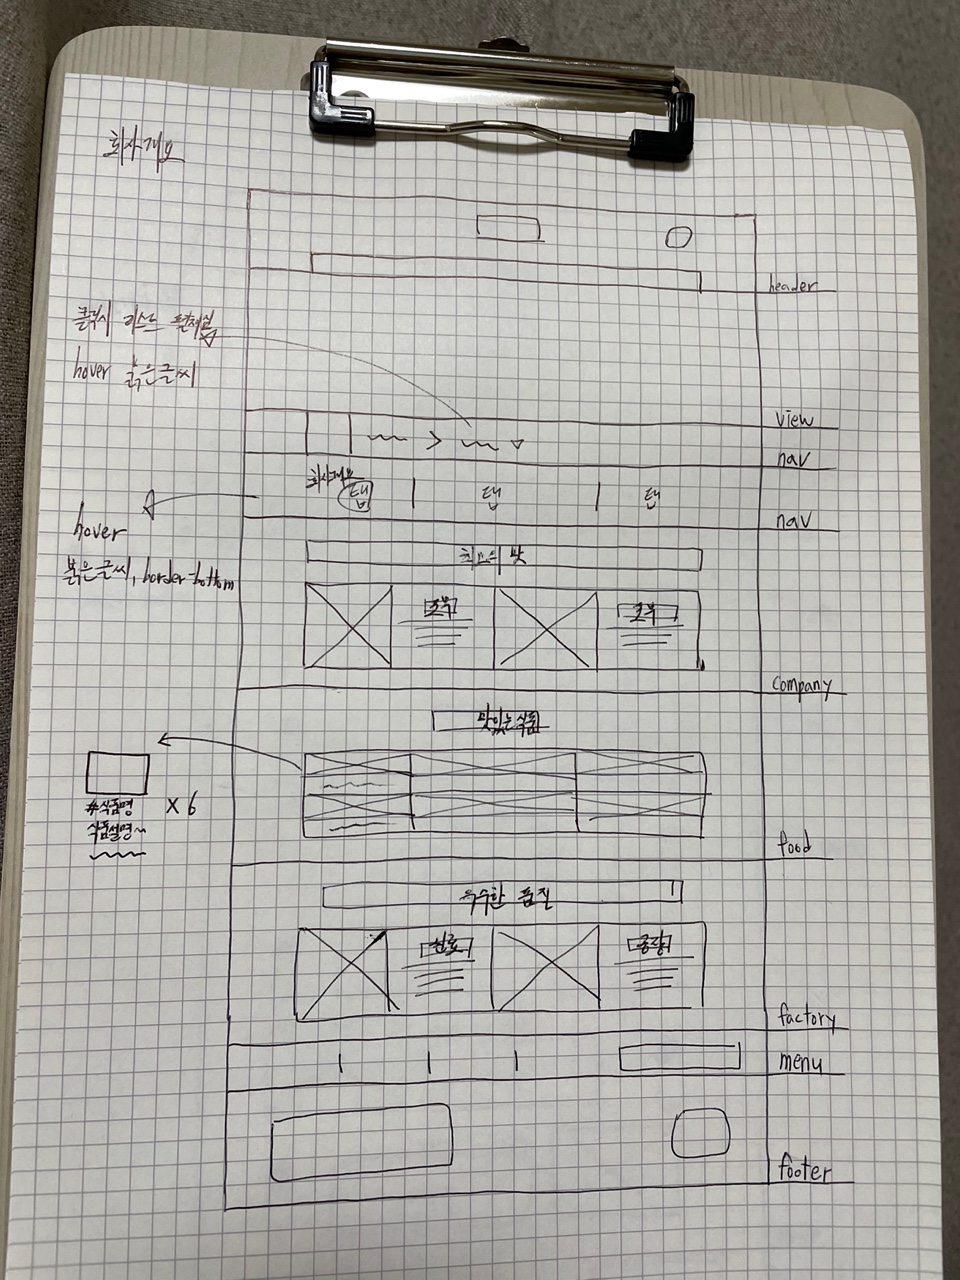 회사개요
header
클릭시 리스트 펼쳐짐
hover 붉은글씨
view
nav
회사개요
탭 탭 탭
nav
hover
붉은글씨, border-bottom
최고의 맛
company
맛있는 식품
#식품명
식품설명~
x 6
food
우수한 품질
원료
공장
factory
menu
footer